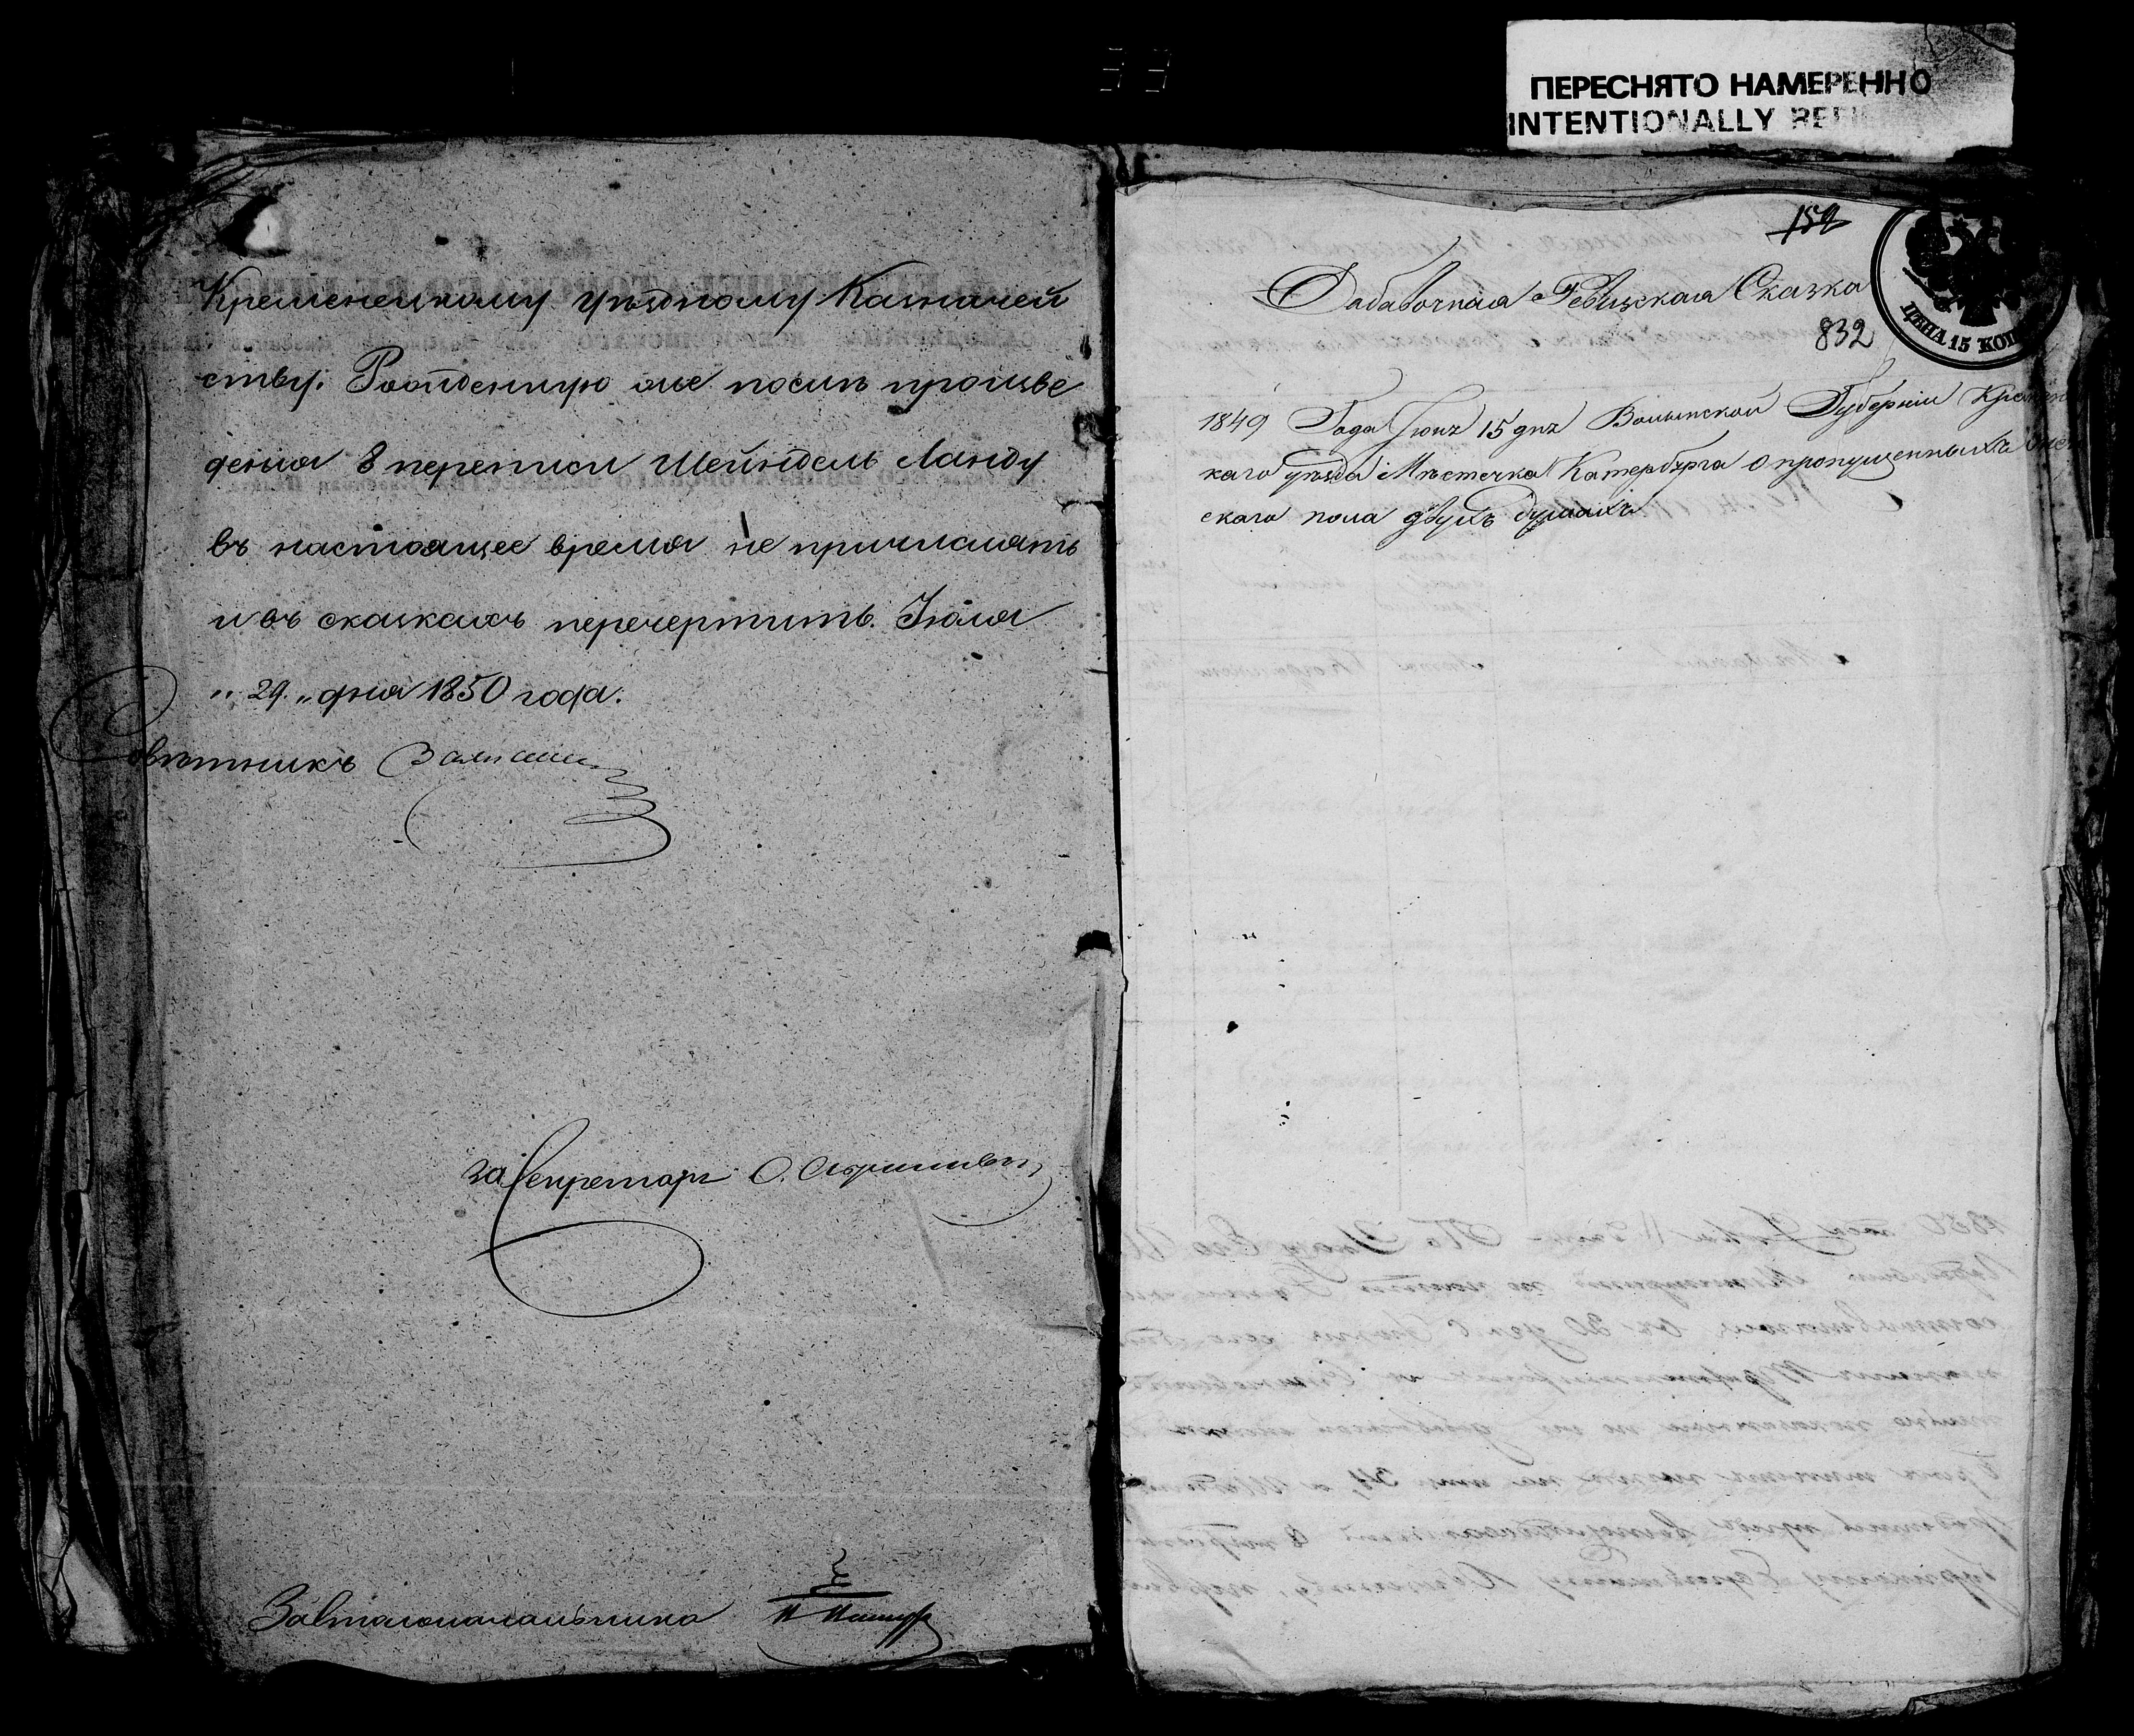 ПЕРЕСНЯТО НАМЕРЕННО
INTENTIONALLY
Кременецкому уѣздному Казначей
ству. Рождению ее послѣ произве
денія 8 переписи Шейндель Ланду
въ настоящее время не причислять
и въ сказкахъ перечертить. Іюля
„ 29 „ дня 1850 года.
Совѣтникъ
за Секретаря
За Столоначальника
159
Дабавочная Ревизская Сказка
832
ЦѢНА 15 КОП
1849 Года Іюнъ 15 днъ Волынской Губерніи Кремен
каго уѣзда Мѣстечка Катербурга о пропущенныхъ
скаго пола двухъ душахъ